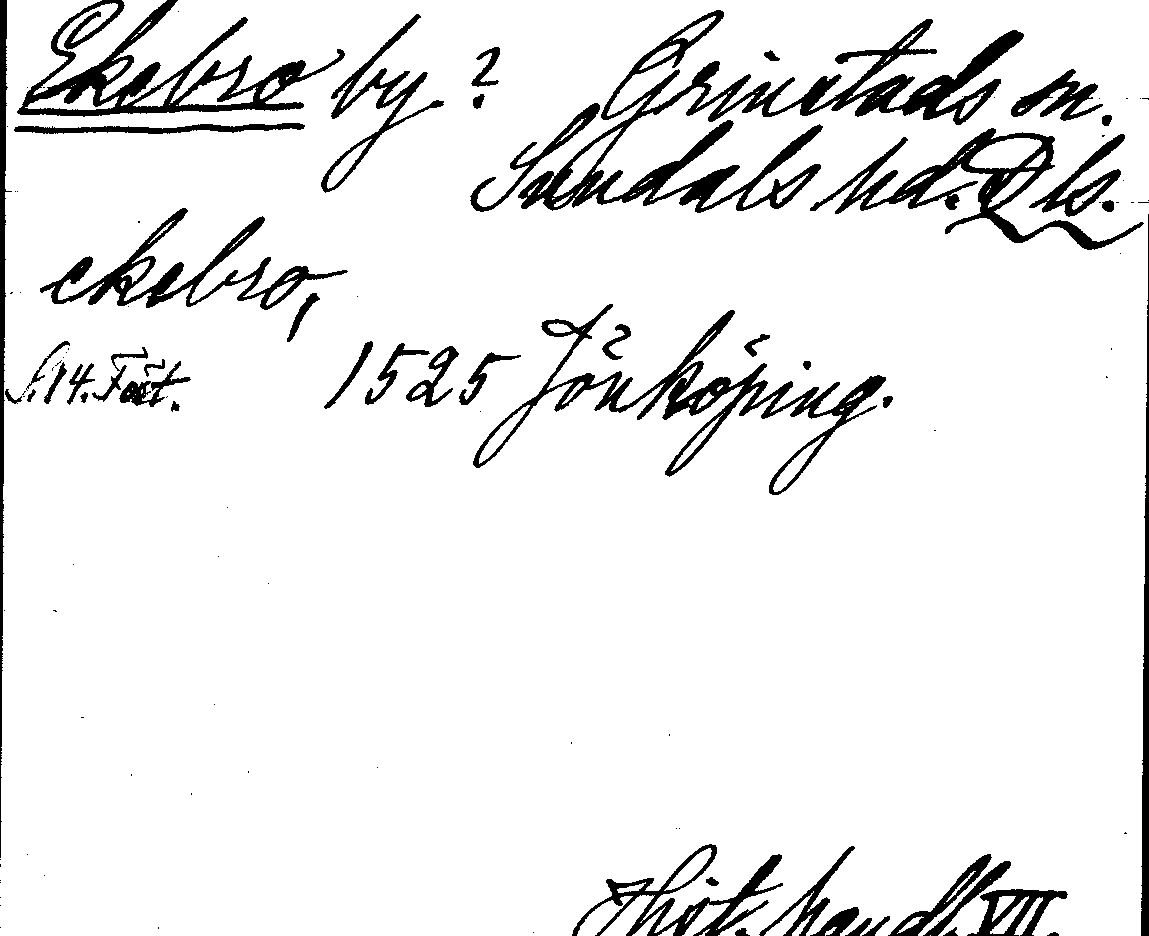 Ekebro by. ? Grinstads sn.
Sundals hd. Dls.
ekebro,
S. 14. Fäst. 1525 Jönköping.
Hist. handl. VII.